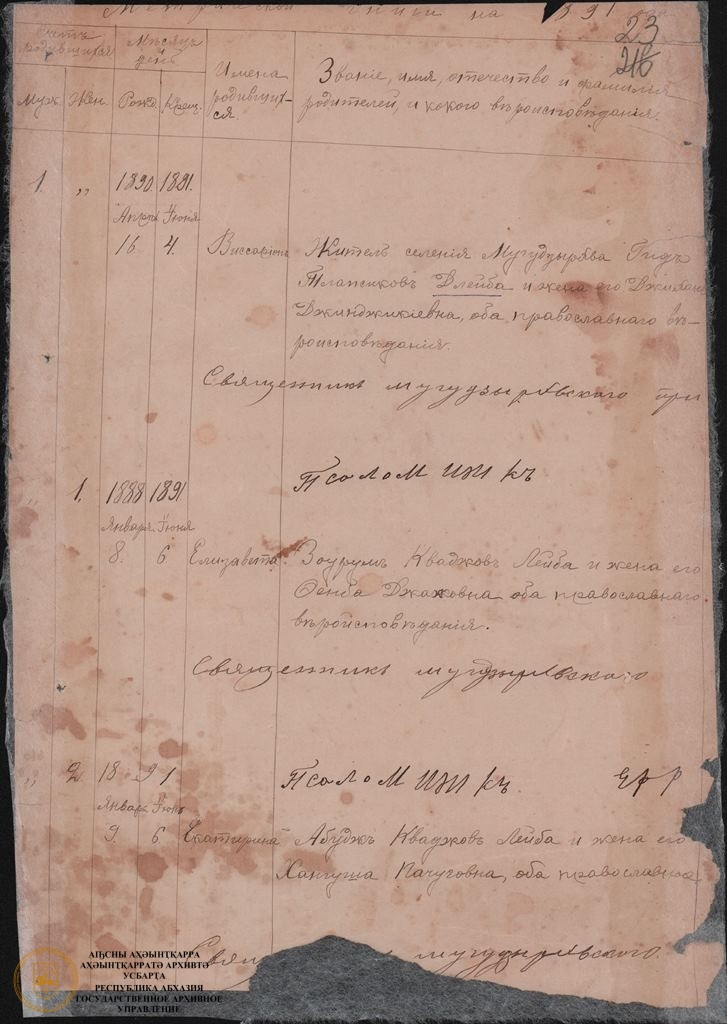 Метрической книги на 1891
23
Счетъ родившихся
Мѣсяцъ и день
Имена родившихся.
Званіе, имя, отечество и фамилія
родителей, и какого вѣроисповѣданія.
Муж. Жен. Рожд. Крещ.
1. " 1890. 1891.
Іюня
16. 4. Виссаріонъ Житель селенія Мугудзырхва Гидъ
Тлапсиковъ Длейба и жена его
Джинджикіевна, оба православнаго вѣ-
роисповѣданія.
Священникъ мугудзырхвского при
Псаломщикъ
" 1. 1888 1891
Января Іюня
8. 6. Елизавета Зоурумъ Кваджовъ Лейба и жена его
Фенба Джаховна оба православнаго
вѣроисповѣданія.
Священникъ
Псаломщикъ
" 2. 18 91
Январ Іюнь
9. 6 Екатерина Абуджъ Кваджовъ Лейба и жена его
Хангуша Пачуговна, оба православнаг
Свящ мугудзырхвского.
АԤСНЫ АҲӘЫНҬҚАРРА
АҲӘЫНҬҚАРРАТӘ АРХИВТӘ
УСБАРҬА
РЕСПУБЛИКА АБХАЗИЯ
ГОСУДАРСТВЕННОЕ АРХИВНОЕ
УПРАВЛЕНИЕ